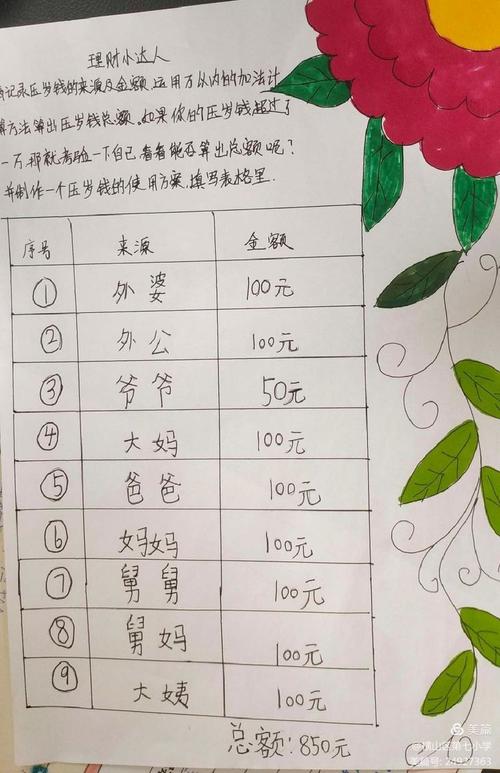 理财小达人
记录压岁钱的来源及金额.运用万以内的加法计
算方法算出压岁钱总额.如果你的压岁钱超过了
一万.那就考验一下自己.看看能否算出总额呢?
并制作一个压岁钱的使用方案.填写表格里.
序号 来源 金额
① 外婆 100元
② 外公 100元
③ 爷爷 50元
④ 大妈 100元
⑤ 爸爸 100元
⑥ 妈妈 100元
⑦ 舅舅 100元
⑧ 舅妈 100元
⑨ 大姨 100元
总额:850元
美篇
@横山区第七小学
美篇号:24927363